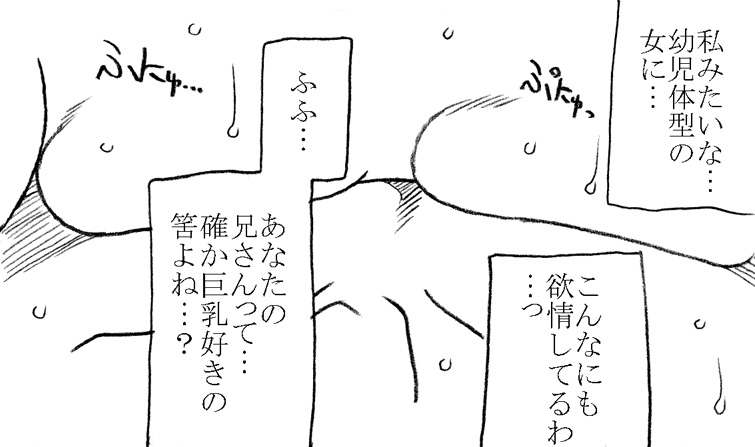 私みたいな…
幼児体型の
女に…
ぷにゅっ
こんなにも
欲情してるわ
…っ
ふふ…
あなたの
兄さんって…
確か巨乳好きの
筈よね…？
ぷにゅ…